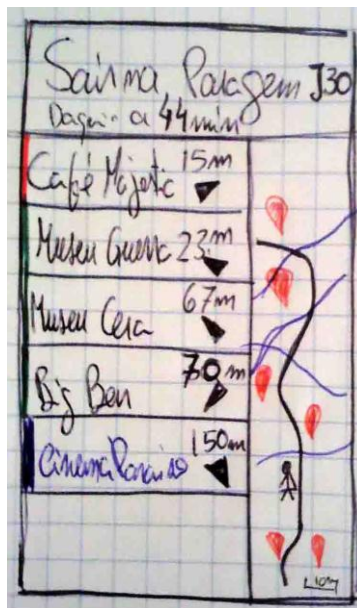 Sair na Paragem J30
Daqui a 44 min
Café Majestic 15m
Museu Guerra 23m
Museu Cera 67m
Big Ben 70m
Cinema Paraiso 150m
10m